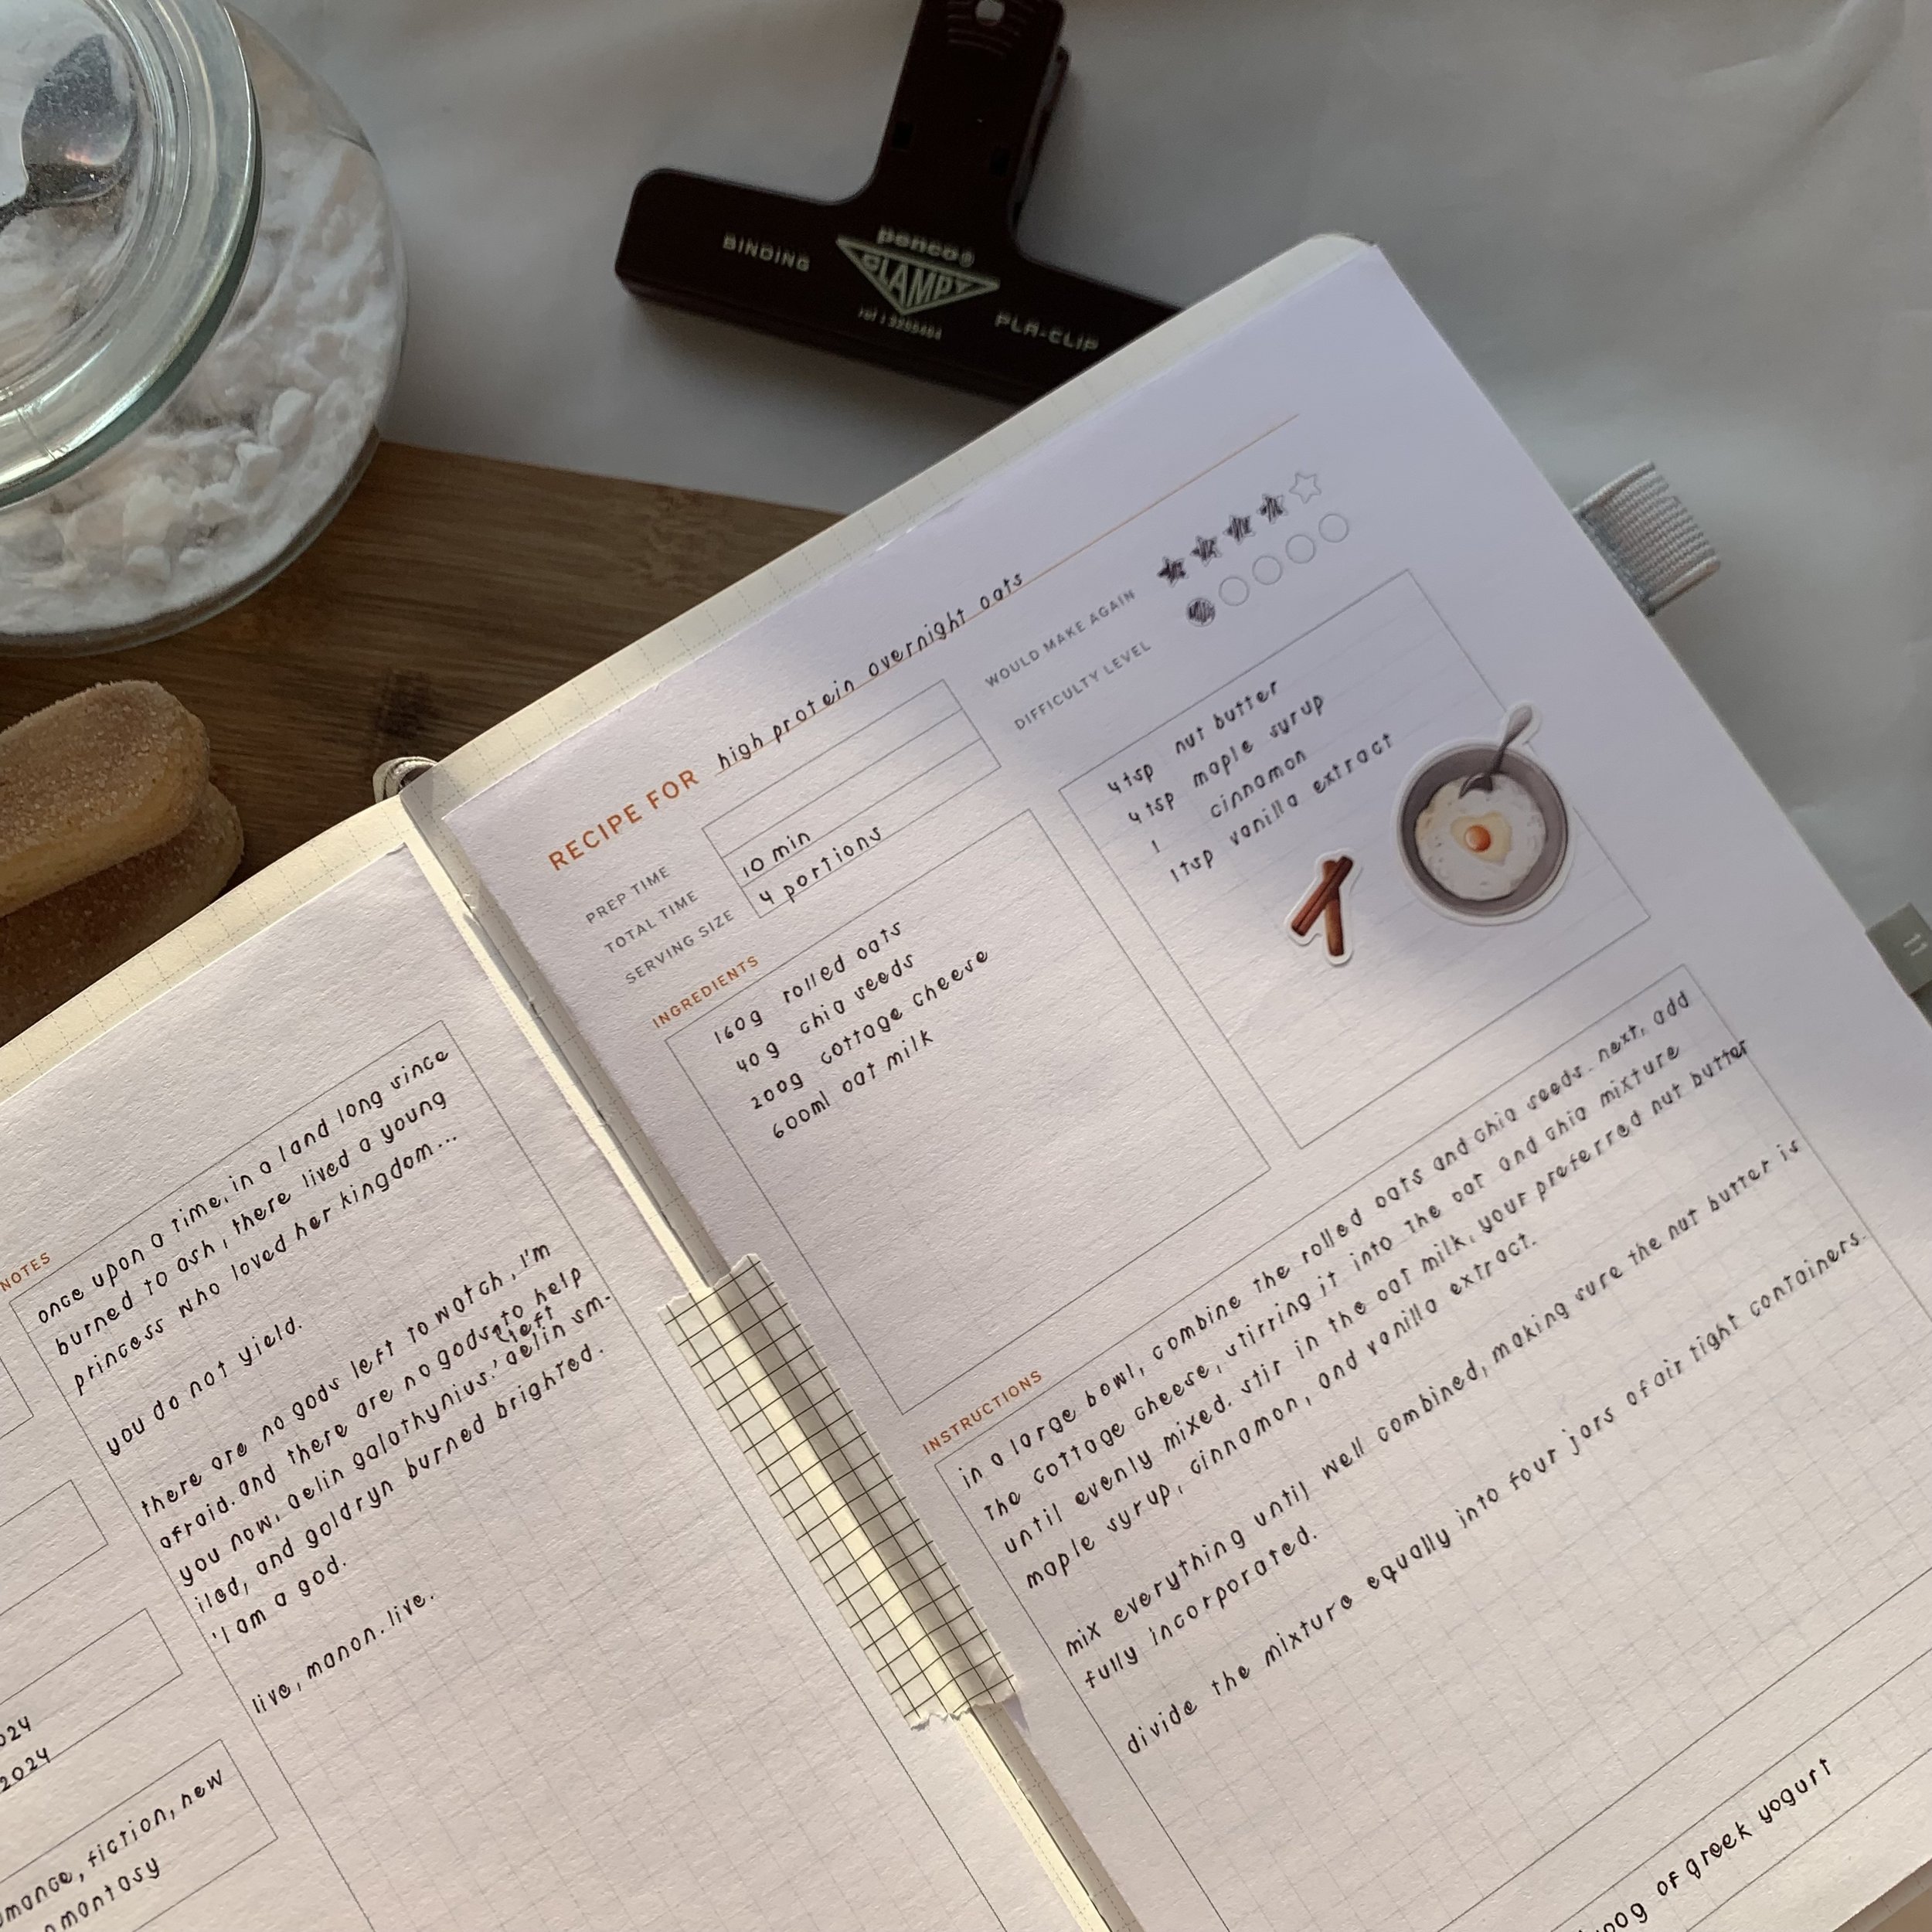 BINDING
penco®
CLAMPY
PLA-CLIP
RECIPE FOR high protein overnight oats
WOULD MAKE AGAIN
DIFFICULTY LEVEL
PREP TIME
TOTAL TIME 10 min
SERVING SIZE 4 portions
INGREDIENTS
160g rolled oats
40g chia seeds
200g cottage cheese
600ml oat milk
4tsp nut butter
4tsp maple syrup
1 cinnamon
1tsp vanilla extract
INSTRUCTIONS
in a large bowl, combine the rolled oats and chia seeds. next, add
the cottage cheese, stirring it into the oat and chia mixture
until evenly mixed. stir in the oat milk, your preferred nut butter
maple syrup, cinnamon, and vanilla extract.
mix everything until well combined, making sure the nut butter is
fully incorporated.
divide the mixture equally into four jars of air tight containers.
of greek yogurt
NOTES
once upon a time, in a land long since
burned to ash, there lived a young
princess who loved her kingdom...
you do not yield.
there are no gods left to watch, i'm
afraid. and there are no gods left to help
you now, aelin galathynius.' aelin sm-
iled, and goldryn burned brighted.
'I am a god.
live, manon. live.
2024
fiction, new